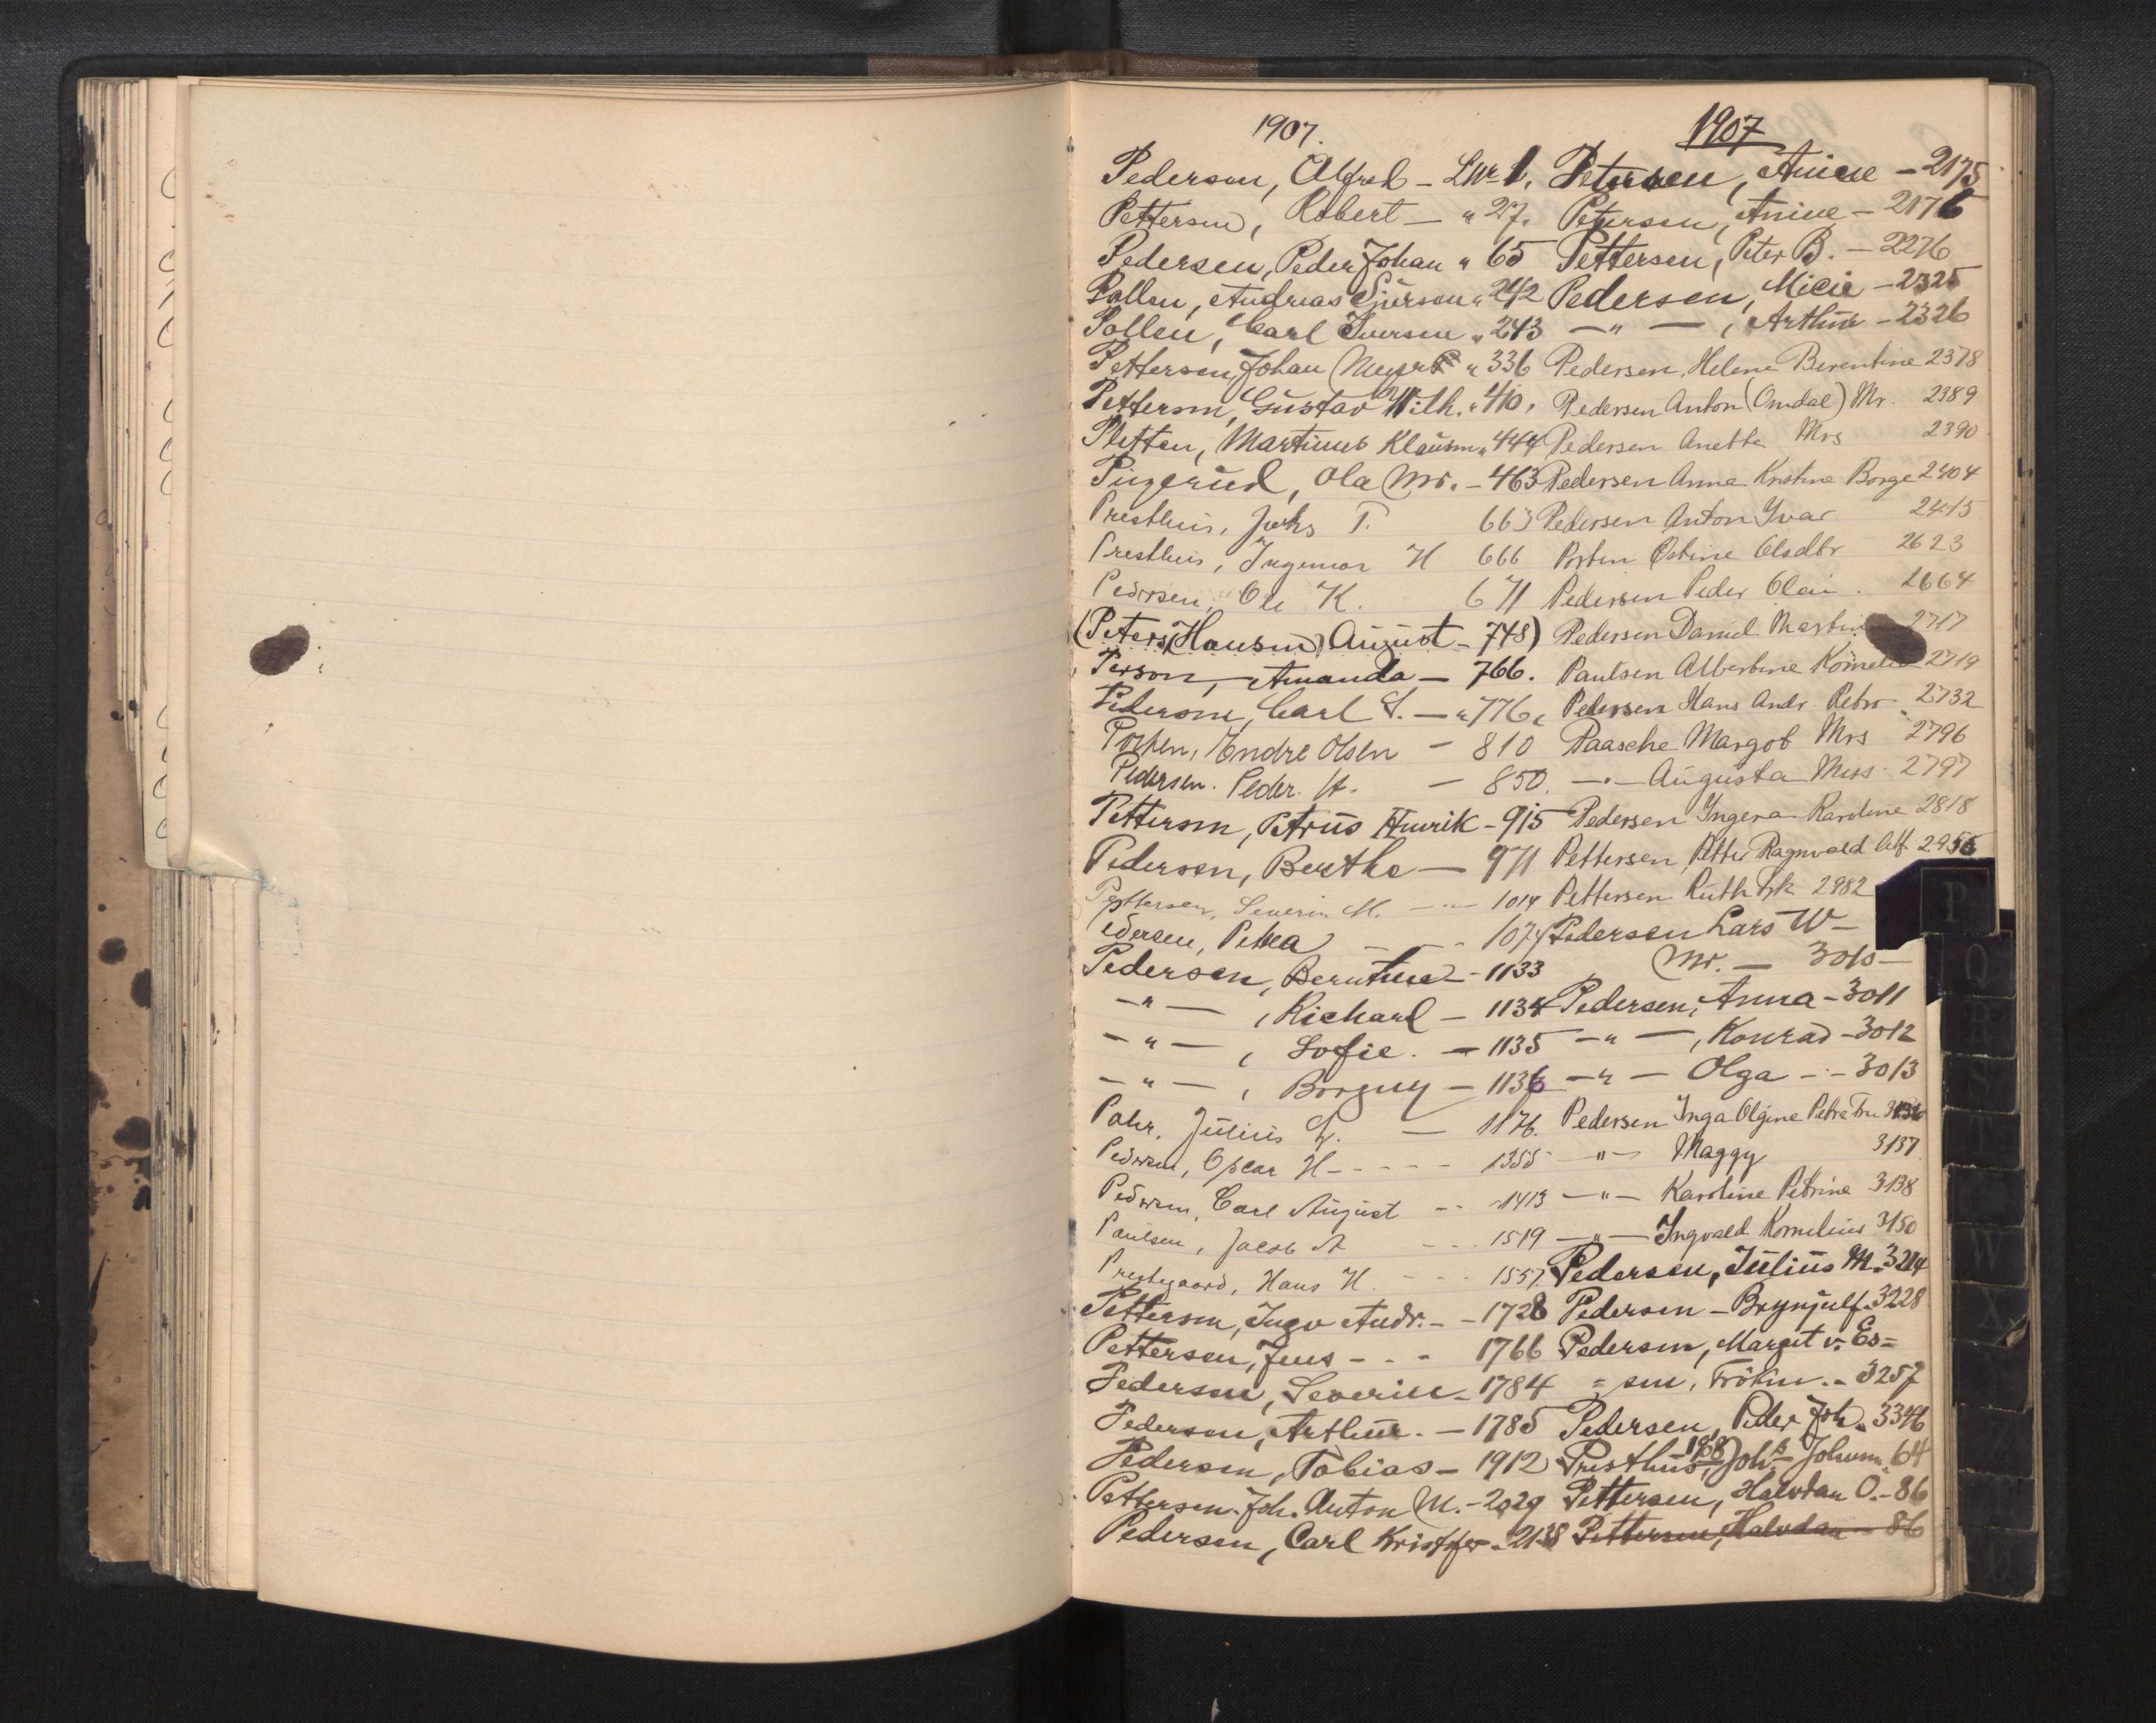 1907.
Pedersen, Alfred - Lnr 1.
Pettersen, Robert - " 27.
Pedersen, Peder Johan " 65
Pollen, Andreas Sjursen " 242
Pollen, Carl Iversen " 243
Pettersen, Johan Meyer " 336
Pettersen, Gustav Wilh. " 410,
Pletten, Martinus Klausen " 444
Pingerud, Ola Mr. - 463
Presthus, Johs T. 663
Presthus, Ingemar H 666
Pedersen, Ole K. 671
(Peters (Hansen) August - 748)
Person, Amanda - 766.
Pedersen, Carl S. - " 776,
Porten, Endre Olsen - 810
Pedersen. Peder. A. - 850.
Pettersen, Petrus Henrik - 915
Pedersen, Berthe - 971
Pettersen, Severin M. - 1014
Pedersen, Petra - - - 1074
Pedersen, Berntine - 1133
- " - , Richard - 1134
- " - , Sofie. - 1135
- " - , Borguy - 1136
Pahr, Julius - 1176.
Pedersen, Oscar H - - - - - 1355
Pedersen, Carl August - - 1413
Paulsen, Jacob A - - - 1519
Prestegaard, Hans H. - - - 1557.
Pettersen, Ingv Andr. - - 1728
Pettersen, Jens - - - 1766
Pedersen, Severin - 1784
Pedersen, Arthur. - 1785
Pedersen, Tobias - 1912
Pettersen. Joh. Anton M. - 2029
Pedersen, Carl Kristffer - 2138
1907
Petersen, Anine - 2175
Petersen, Anine - 2176
Pettersen, Peter B. - 2276
Pedersen, Micie - 2325
- " - , Arthur - 2326
Pedersen, Helene Berentine 2378
Pedersen Anton (Omdal) Mr. 2389
Pedersen Anette Mrs 2390
Pedersen Anna Kristine Borge 2404
Pedersen Anton Ivar 2415
Porten Østine Olsdtr 2623
Pedersen Peder Olai. 2664
Pedersen Daniel Martin 2717
Paulsen Albertine Kornelia 2719
Pedersen Hans Andr. Petro 2732
Paasche Margot Mrs 2796
- " - Augusta Miss 2797
Pedersen Ingera Karoline 2818
Pettersen, Petter Ragnvald Alf 2955
Pettersen Ruth Frk 2982
Pedersen Lars W -
Mr. - 3010 -
Pedersen, Anna - 3011
- " - , Konrad - 3012
- " - Olga - - 3013
Pedersen Inga Olgine Petra Fru 3136
- " - Maggy 3137
- " - Karoline Petrine 3138
- " - Ingvald Kornelius 3150
Pedersen, Julius M. 3214
Pedersen - Brynjulf. 3228
Pedersen, Margit v. Es =
= sen, Frøken. - 3257
Pedersen, Peder Joh. 3346
1908
Presthus, Johs Johann. 64
Pettersen, Halvdan O. - 86
Pettersen, Halvdan - 86
P
Q
R
S
T
W
X